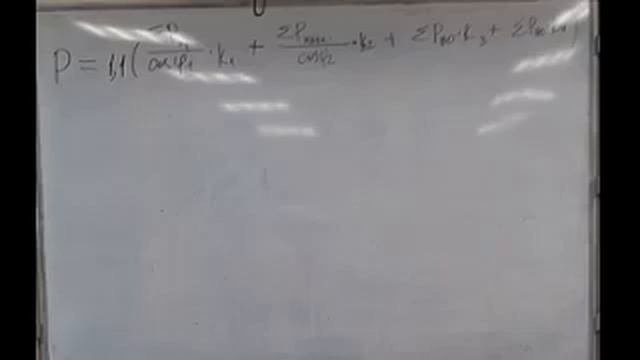 P = 1,1 ( ΣP / cosφ₁ · K₁ + ΣP / cosφ₂ · K₂ + ΣP · K₃ + ΣP